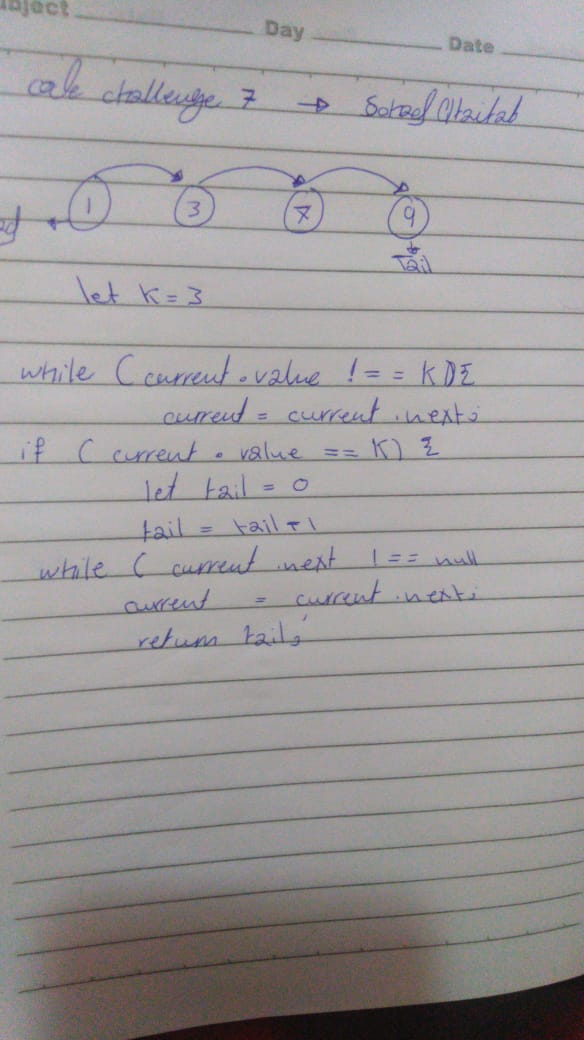 ubject
Day
Date
code challenge 7 →
1 3 7 9
Tail
let K = 3
while ( current . value ! = = K ) {
current = current . next ;
if ( current . value == K ) {
let tail = 0
tail = tail + 1
while ( current . next ! == null
current = current . next ;
return tail ;